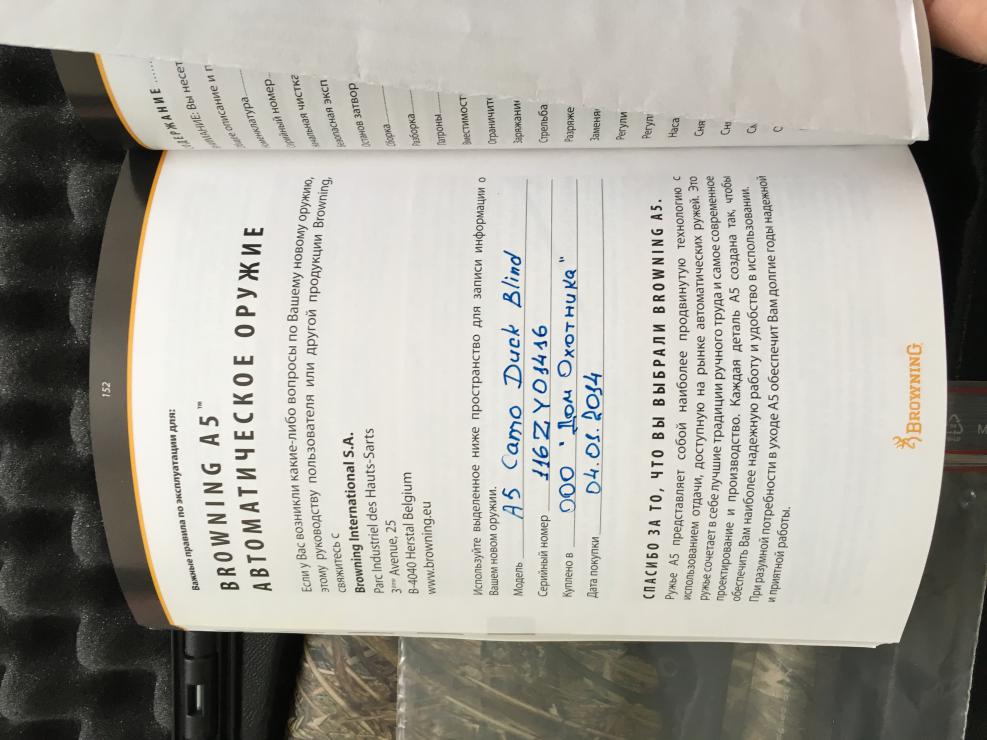 152
Важные правила по эксплуатации для:
BROWNING A5™
АВТОМАТИЧЕСКОЕ ОРУЖИЕ
Если у Вас возникли какие-либо вопросы по Вашему новому оружию,
этому руководству пользователя или другой продукции Browning,
свяжитесь с
Browning International S.A.
Parc Industriel des Hauts-Sarts
3ème Avenue, 25
B-4040 Herstal Belgium
www.browning.eu
Используйте выделенное ниже пространство для записи информации о
Вашем новом оружии.
Модель A5 Camo Duck Blind
Серийный номер 116ZY01416
Куплено в ООО "Дом Охотника"
Дата покупки 2014
СПАСИБО ЗА ТО, ЧТО ВЫ ВЫБРАЛИ BROWNING A5.
Ружье A5 представляет собой наиболее продвинутую технологию с
использованием отдачи, доступную на рынке автоматических ружей. Это
ружье сочетает в себе лучшие традиции ручного труда и самое современное
проектирование и производство. Каждая деталь A5 создана так, чтобы
обеспечить Вам наиболее надежную работу и удобство в использовании.
При разумной потребности в уходе A5 обеспечит Вам долгие годы надежной
и приятной работы.
BROWNING
ДЕРЖАНИЕ
ИМАНИЕ: Вы несет
бщее описание и п
оменклатура
ерийный номер
чальная чистка
езопасная эксп
Останов затвор
Сборка
Разборка
Патроны
Вместимост
Ограничит
Заряжани
Стрельба
Разряже
Заменя
Регули
Регул
Наса
Сня